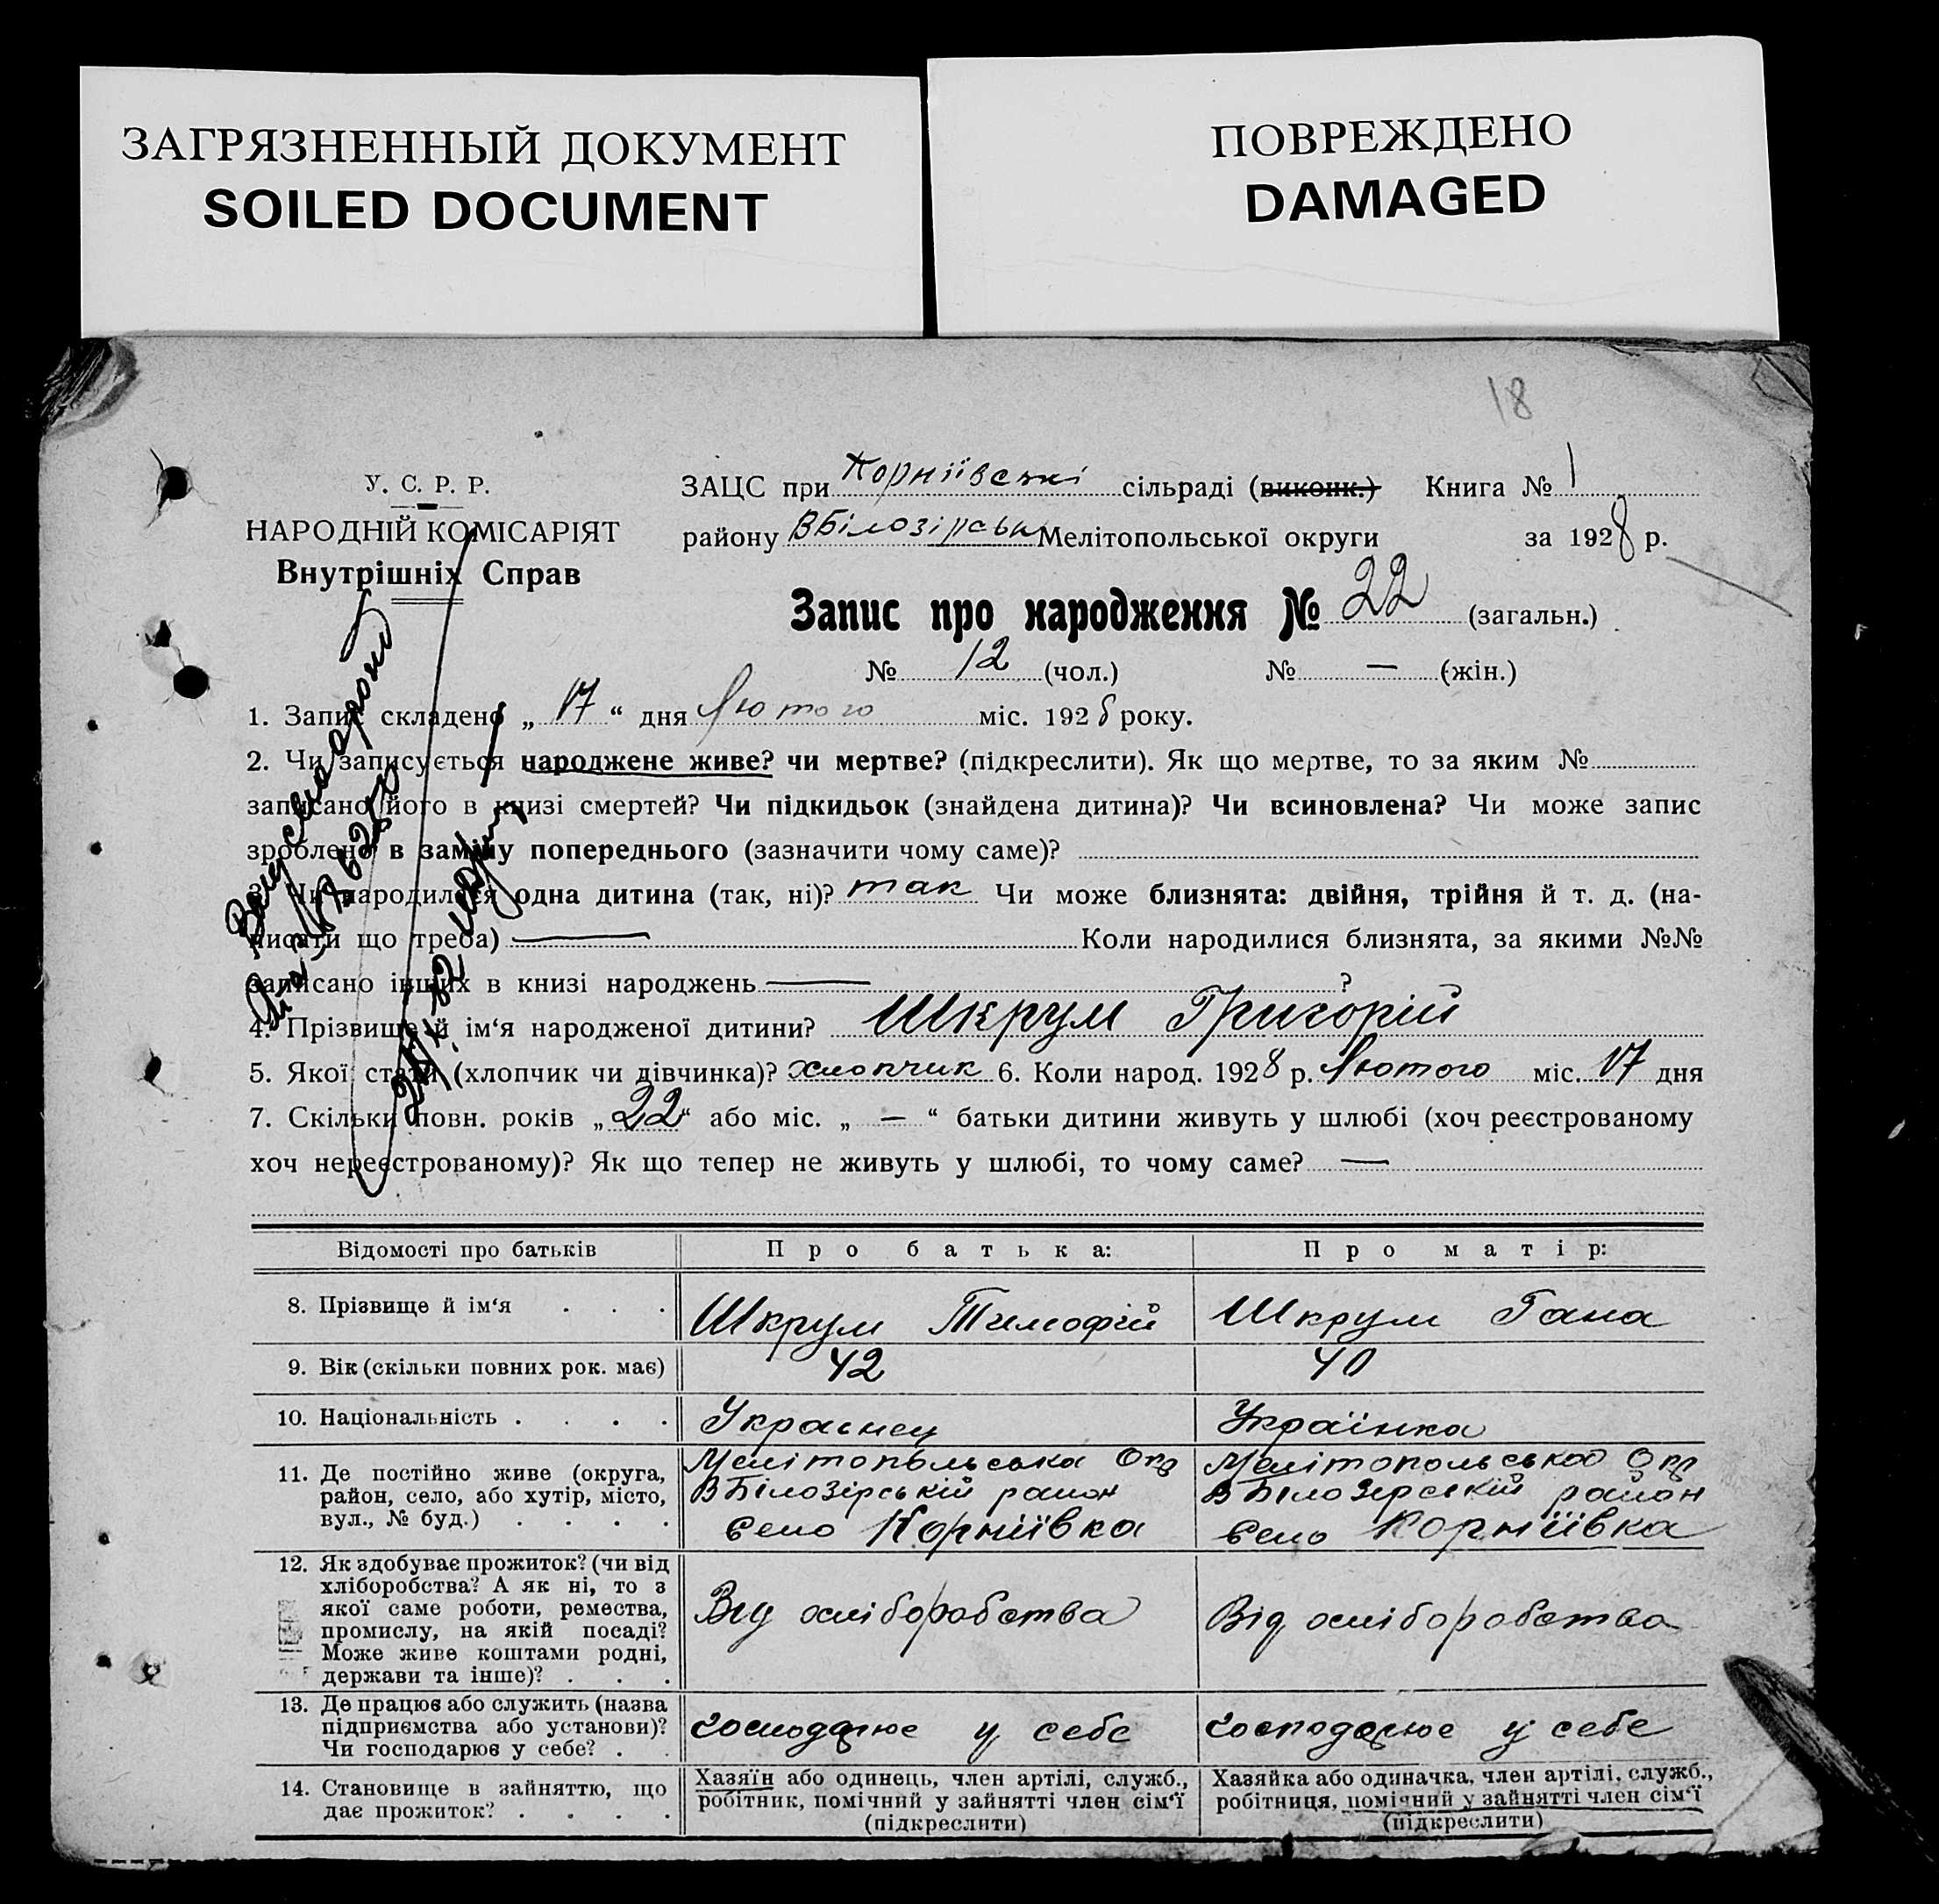 ЗАГРЯЗНЕННЫЙ ДОКУМЕНТ
SOILED DOCUMENT
ПОВРЕЖДЕНО
DAMAGED
18
У. С. Р. Р.
НАРОДНІЙ КОМІСАРІЯТ
Внутрішніх Справ
ЗАЦС при Корніївські сільраді (виконк.) Книга № 1
району ВБілозірськ Мелітопольської округи за 1928 р.
Запис про народження № 22 (загальн.)
№ 12 (чол.) № — (жін.)
1. Запис складено „ 17 “ дня Лютого міс. 1928 року.
2. Чи записується народжене живе? чи мертве? (підкреслити). Як що мертве, то за яким №
записано його в книзі смертей? Чи підкидьок (знайдена дитина)? Чи всиновлена? Чи може запис
зроблено в заміну попереднього (зазначити чому саме)?
3. Чи народилася одна дитина (так, ні)? так Чи може близнята: двійня, трійня й т. д. (на-
писати що треба) — Коли народилися близнята, за якими №№
записано інших в книзі народжень — ?
4. Прізвище й ім‘я народженої дитини? Шкрум Григорій
5. Якої статі (хлопчик чи дівчинка)? хлопчик 6. Коли народ. 1928 р. Лютого міс. 17 дня
7. Скільки повн. років „ 22 “ або міс. „ — “ батьки дитини живуть у шлюбі (хоч реєстрованому
хоч нереєстрованому)? Як що тепер не живуть у шлюбі, то чому саме? —
Відомості про батьків Про батька: Про матір:
8. Прізвище й ім‘я . . . Шкрум Тимофій Шкрум Гана
9. Вік (скільки повних рок. має) 42 40
10. Національність . . . . Украінец Українка
11. Де постійно живе (округа,
район, село, або хутір, місто,
вул., № буд.) . . . .
Мелітопольська Окр
ВБілозірській район
Село Корніївка
Мелітопольська Окр
ВБілозерскій район
Село Корніївка
12. Як здобуває прожиток? (чи від
хліборобства? А як ні, то з
якої саме роботи, ремества,
промислу, на якій посаді?
Може живе коштами родні,
держави та інше)? . . .
Від хліборобства
Від хліборобства
13. Де працює або служить (назва
підприємства або установи)?
Чи господарює у себе? . .
господарює у себе
господарює у себе
14. Становище в зайняттю, що
дає прожиток? . . . .
Хазяїн або одинець, член артілі, служб.,
робітник, помічний у зайнятті член сім‘ї
(підкреслити)
Хазяйка або одиначка, член артілі, служб.,
робітниця, помічний у зайнятті член сім‘ї
(підкреслити)